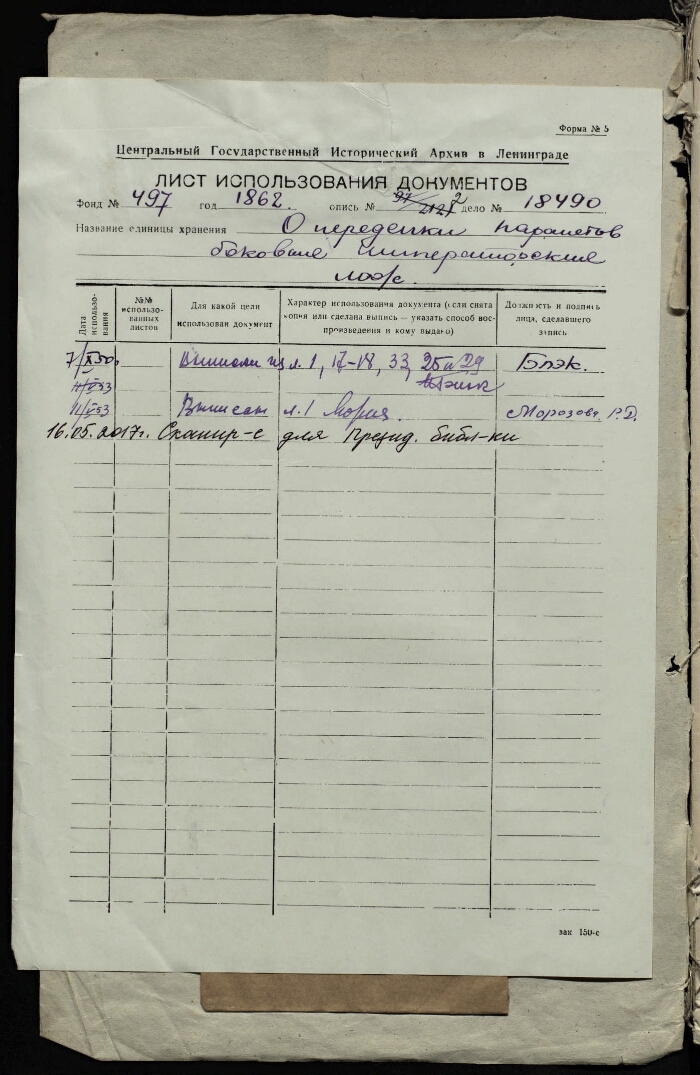 Форма № 5
Центральный Государственный Исторический Архив в Ленинграде
ЛИСТ ИСПОЛЬЗОВАНИЯ ДОКУМЕНТОВ
Фонд № 497 год 1862. опись № 97/2121 2 дело № 18490
Название единицы хранения О переделки парапетов
боковые императорские
лож.
Дата использования
№№ использованных листов
Для какой цели использован документ
Характер использования документа (если снята копия или сделана выпись — указать способ воспроизведения и кому выдано)
Должность и подпись лица, сделавшего запись
7/XI50. Выписали из л. 1, 17-18, 33, 25 и 29 Блэк.
11/V53
11/V53 Выписан л. 1 Морозова Р.Д.
16.05.2017г. Сканир-е для Презид. библ-ки
зак 150-с